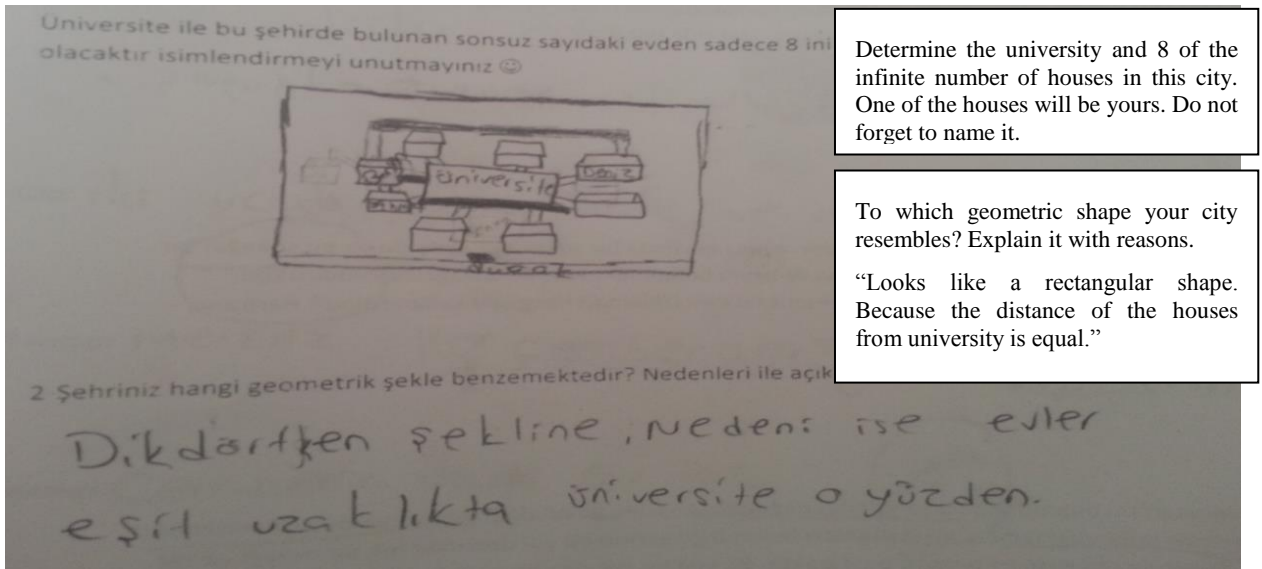 Üniversite ile bu şehirde bulunan sonsuz sayıdaki evden sadece 8 ini
olacaktır isimlendirmeyi unutmayınız ☺
Determine the university and 8 of the
infinite number of houses in this city.
One of the houses will be yours. Do not
forget to name it.
Üniversite
Deniz
To which geometric shape your city
resembles? Explain it with reasons.
“Looks like a rectangular shape.
Because the distance of the houses
from university is equal.”
2 Şehriniz hangi geometrik şekle benzemektedir? Nedenleri ile açık
Dikdörtgen şekline, Nedeni ise evler
eşit uzaklıkta üniversite o yüzden.